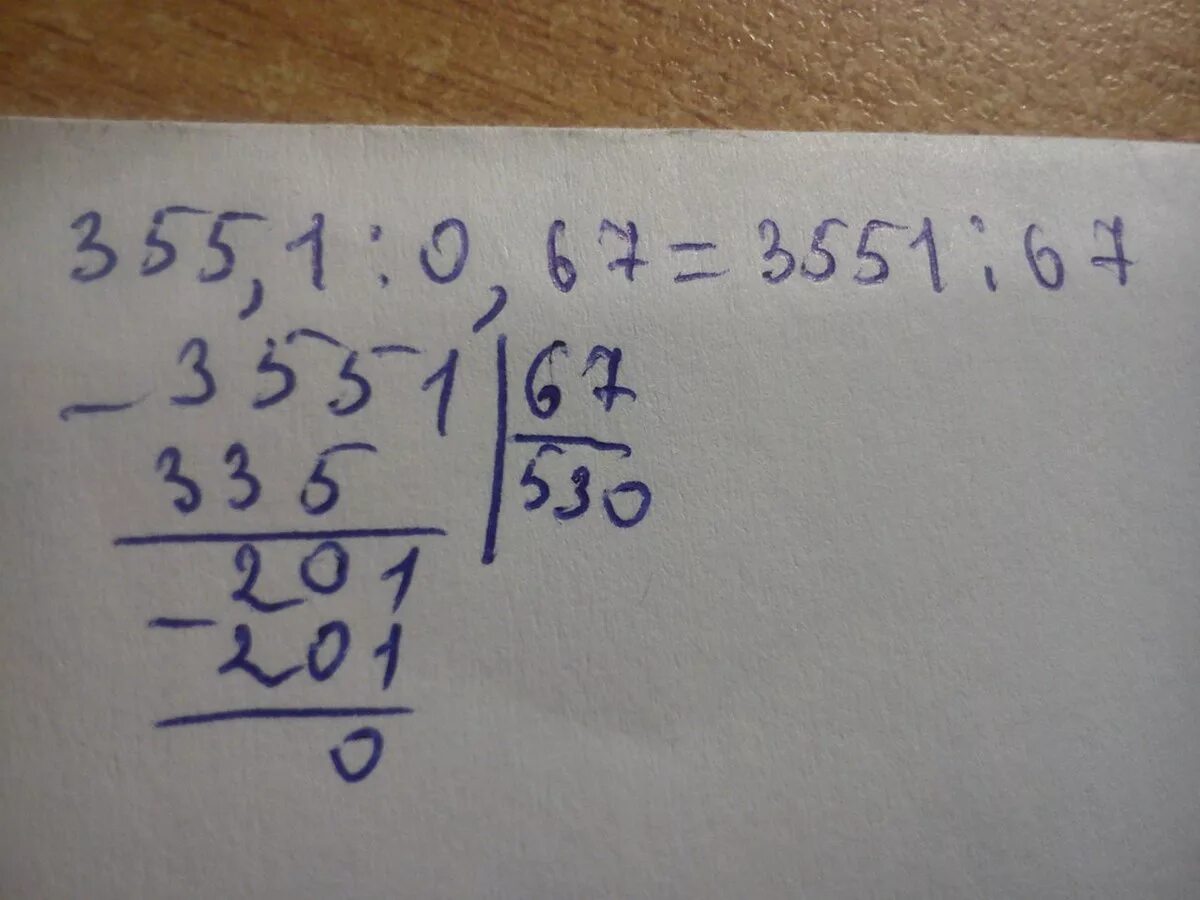 355,1 : 0,67 = 3551 : 67
- 3551 | 67
335 | 530
201
- 201
0